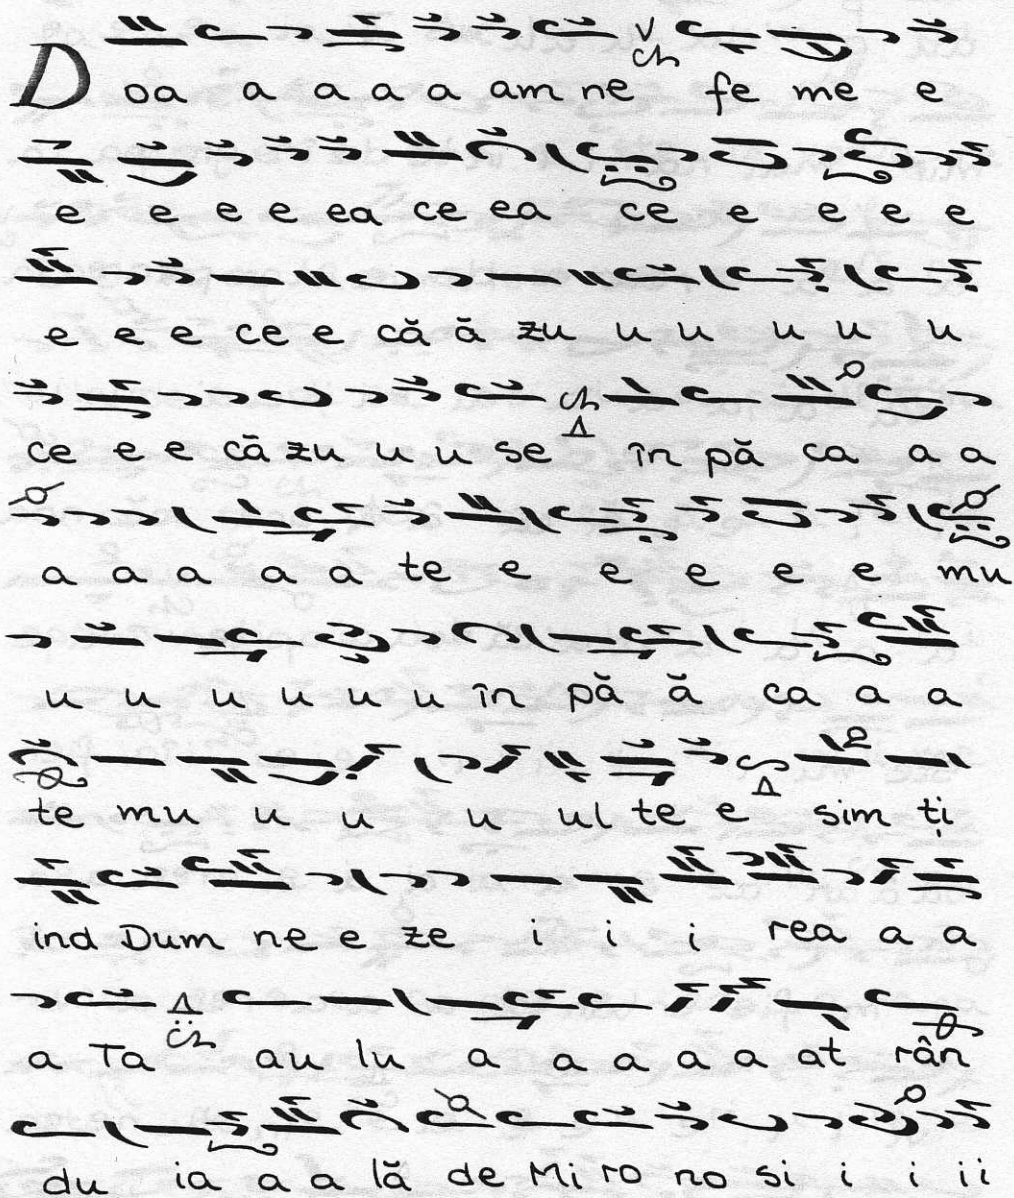 Doa a a a a am ne fe me e
e e e e ea ce ea ce e e e e
e e e ce e că ă zu u u u u u
ce e e că zu u u se în pă ca a a
a a a a a te e e e e e mu
u u u u u u în pă ă ca a a
te mu u u u ul te e sim ți
ind Dum ne e ze i i i rea a a
a Ta au lu a a a a at rân
du ia a a lă de Mi ro no si i i ii